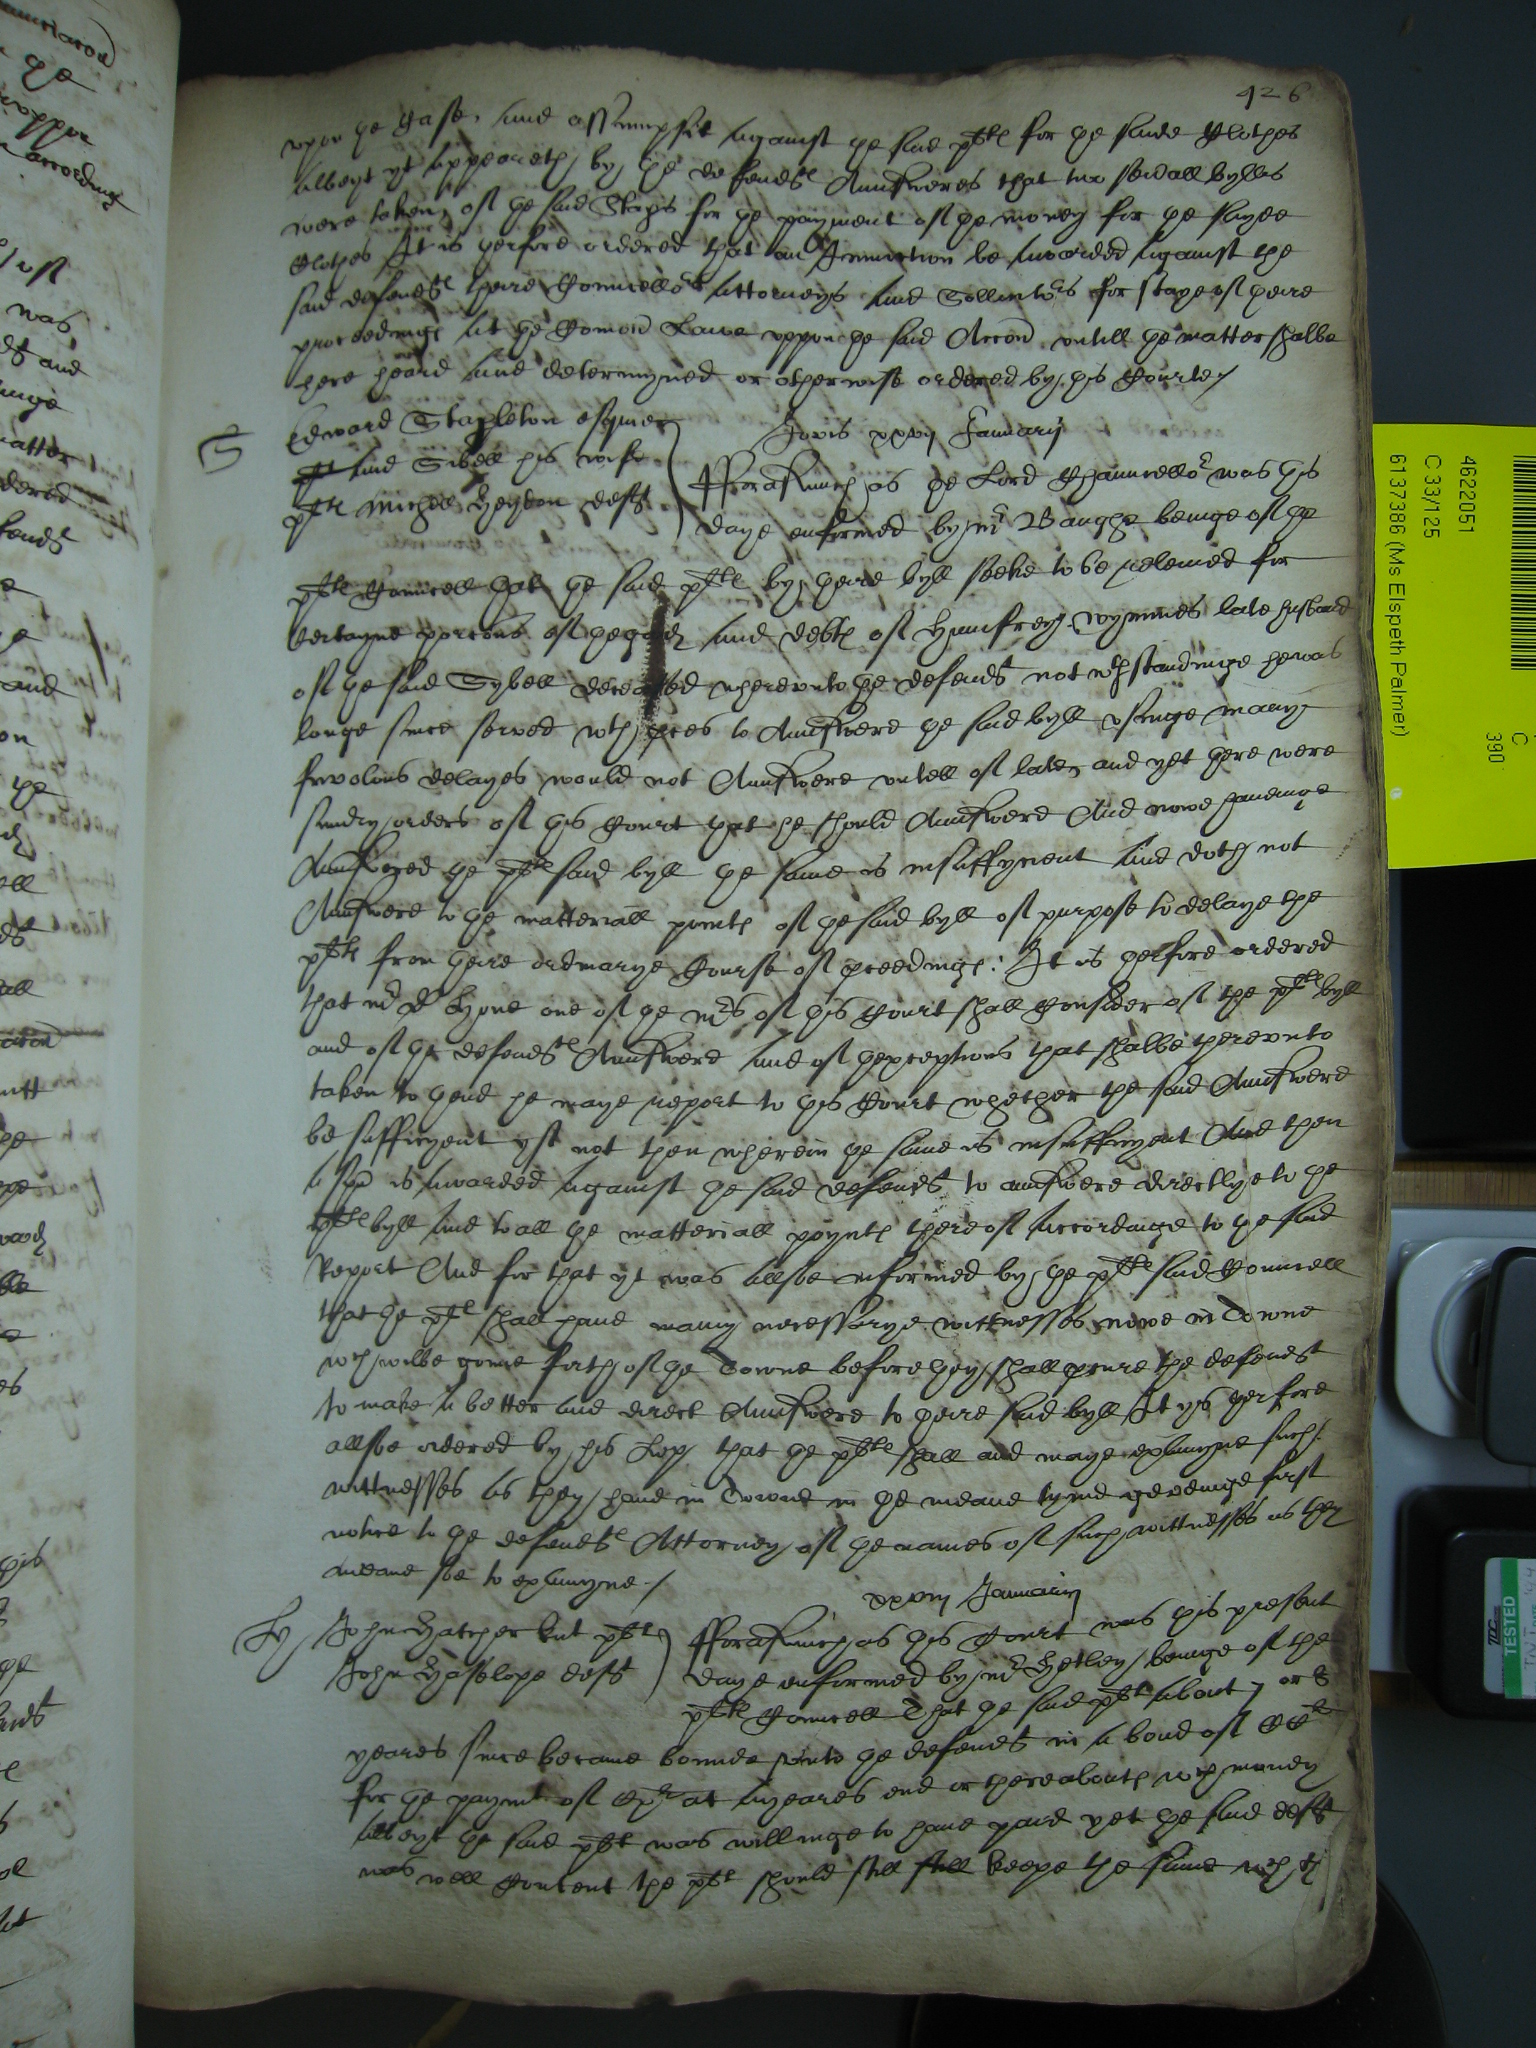 426
vpon the Case, and assumpsit against the said pltes for the saide Clothes
albeyt yt appeareth by the defendtes Aunsweres that two seuerall bylles
were taken of the said for the payment of the money for the sayde
Clothes It is therfore ordered that an Iniunction be awarded against the
said defendtes theire Councello{rs} Attorneys and Sollicito{rs} for staye of theire
proceedinge at the Comon Lawe vppon the said Accon vntill the matter shalbe
here heard and determyned or otherwise ordered by this Courte
S
Edward Stapleton esquier
and Sibell his wife
pltes Michell Heydon deft
Jovis xxvij Januarij
fforasmuch as the Lord Chauncello{r} was this
daye enformed by m{r} Baughe beinge of the
pltes Councell that the said pltes by theire byll seeke to be releived for
certayne porcons of the goodes and debtes of Humfrey Wymmes late husband
of the said Sybell deceassed wherevnto the defendt not w{th}standinge he was
longe since served w{th} proces to Aunswere the said byll vsinge many
frivolous delayes would not Aunswere vntell of late and yet there were
sundry orders of this Court that he should Aunswere And nowe haveinge
Aunswered the pltes said byll the same is insuffycient and doth not
Aunswere to the materiall pointes of the said byll of purpose to delaye the
pltes from theire ordinarye Course of proceedinge: It is therfore ordered
that m{r} D Hone one of the m{rs} of this Court shall Consider of the pltes byll
and of the defendtes Aunswere and of thexceptions that shalbe therevnto
taken to thend he maye report to this Court whether the said Aunswere
be sufficyent yf not then wherein the same is insufficyent And then
a spa is awarded against the said defendt to aunswere directlye to the
pltes byll and to all the materiall poyntes thereof accordinge to the said
Report And for that yt was allsoe informed by the pltes said Councell
that the pltes shall haue many necessarye wittnesses nowe in Towne
w{ch} wilbe gonne forth of the Towne before they shall procure the defendt
to make a better and direct Aunswere to theire said byll It ys therfore
allsoe ordered by his Lop that the pltes shall and maye examyne such
wittnesses as they haue in Towne in the meane tyme geveinge first
notice to the defendtes Attorney of the names of such wittnesses as they
meane soe to examyne
xxviij Januarij
Ly
John Hatcher plt
John Haselope deft
fforasmuch as this Court was this present
daye enformed by m{r} Hetley beinge of the
pltes Councell That the said plt about 7 or 8
yeares since became bounde vnto the defendt in a bond of CC{li}
for the paymt of C{li} at a yeares end or thereaboutes w{ch} money
albeyt the said plt was willinge to haue paid yet the said deft
was well Content the plt should still still keepe the same w{ch}
46222051
C 33/125
6137386 (Ms Elspeth Palmer)
C
390
TESTED